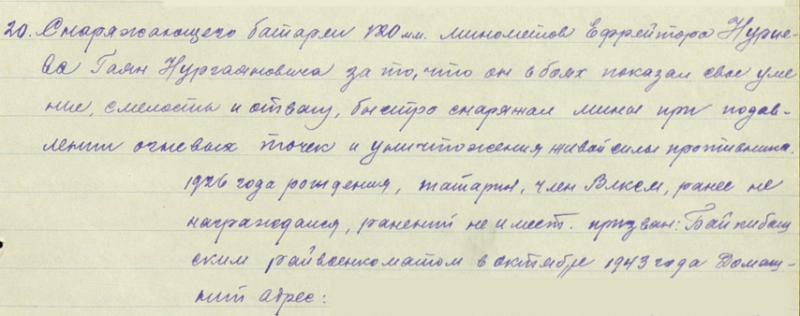 20. Снаряжающего батареи 120 мм. миномётов Ефрейтора Нурие-
ва Гаян Нургаяновича за то, что он в боях показал свое уме
ние, смелость и отвагу, быстро снаряжал мины при подав-
лении огневых точек и уничтожения живой силы противника.
1926 года рождения, татарин, член ВЛКСМ, ранее не
награждался, ранений не имеет. призван: Байкибаш
ским райвоенкоматом в октябре 1943 года Домаш-
ний адрес: